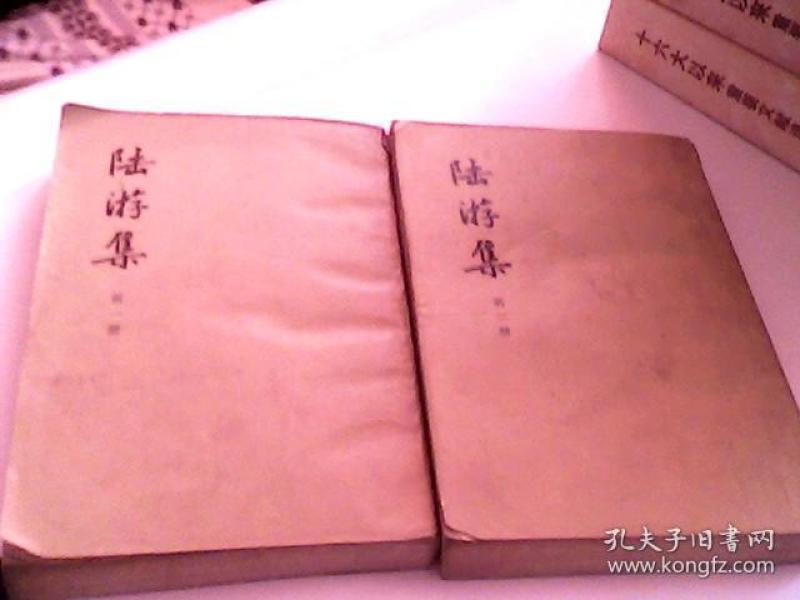 陆游集
第一册
陆游集
第二册
以来重要
十六大以来重要文献选
孔夫子旧书网
www.kongfz.com